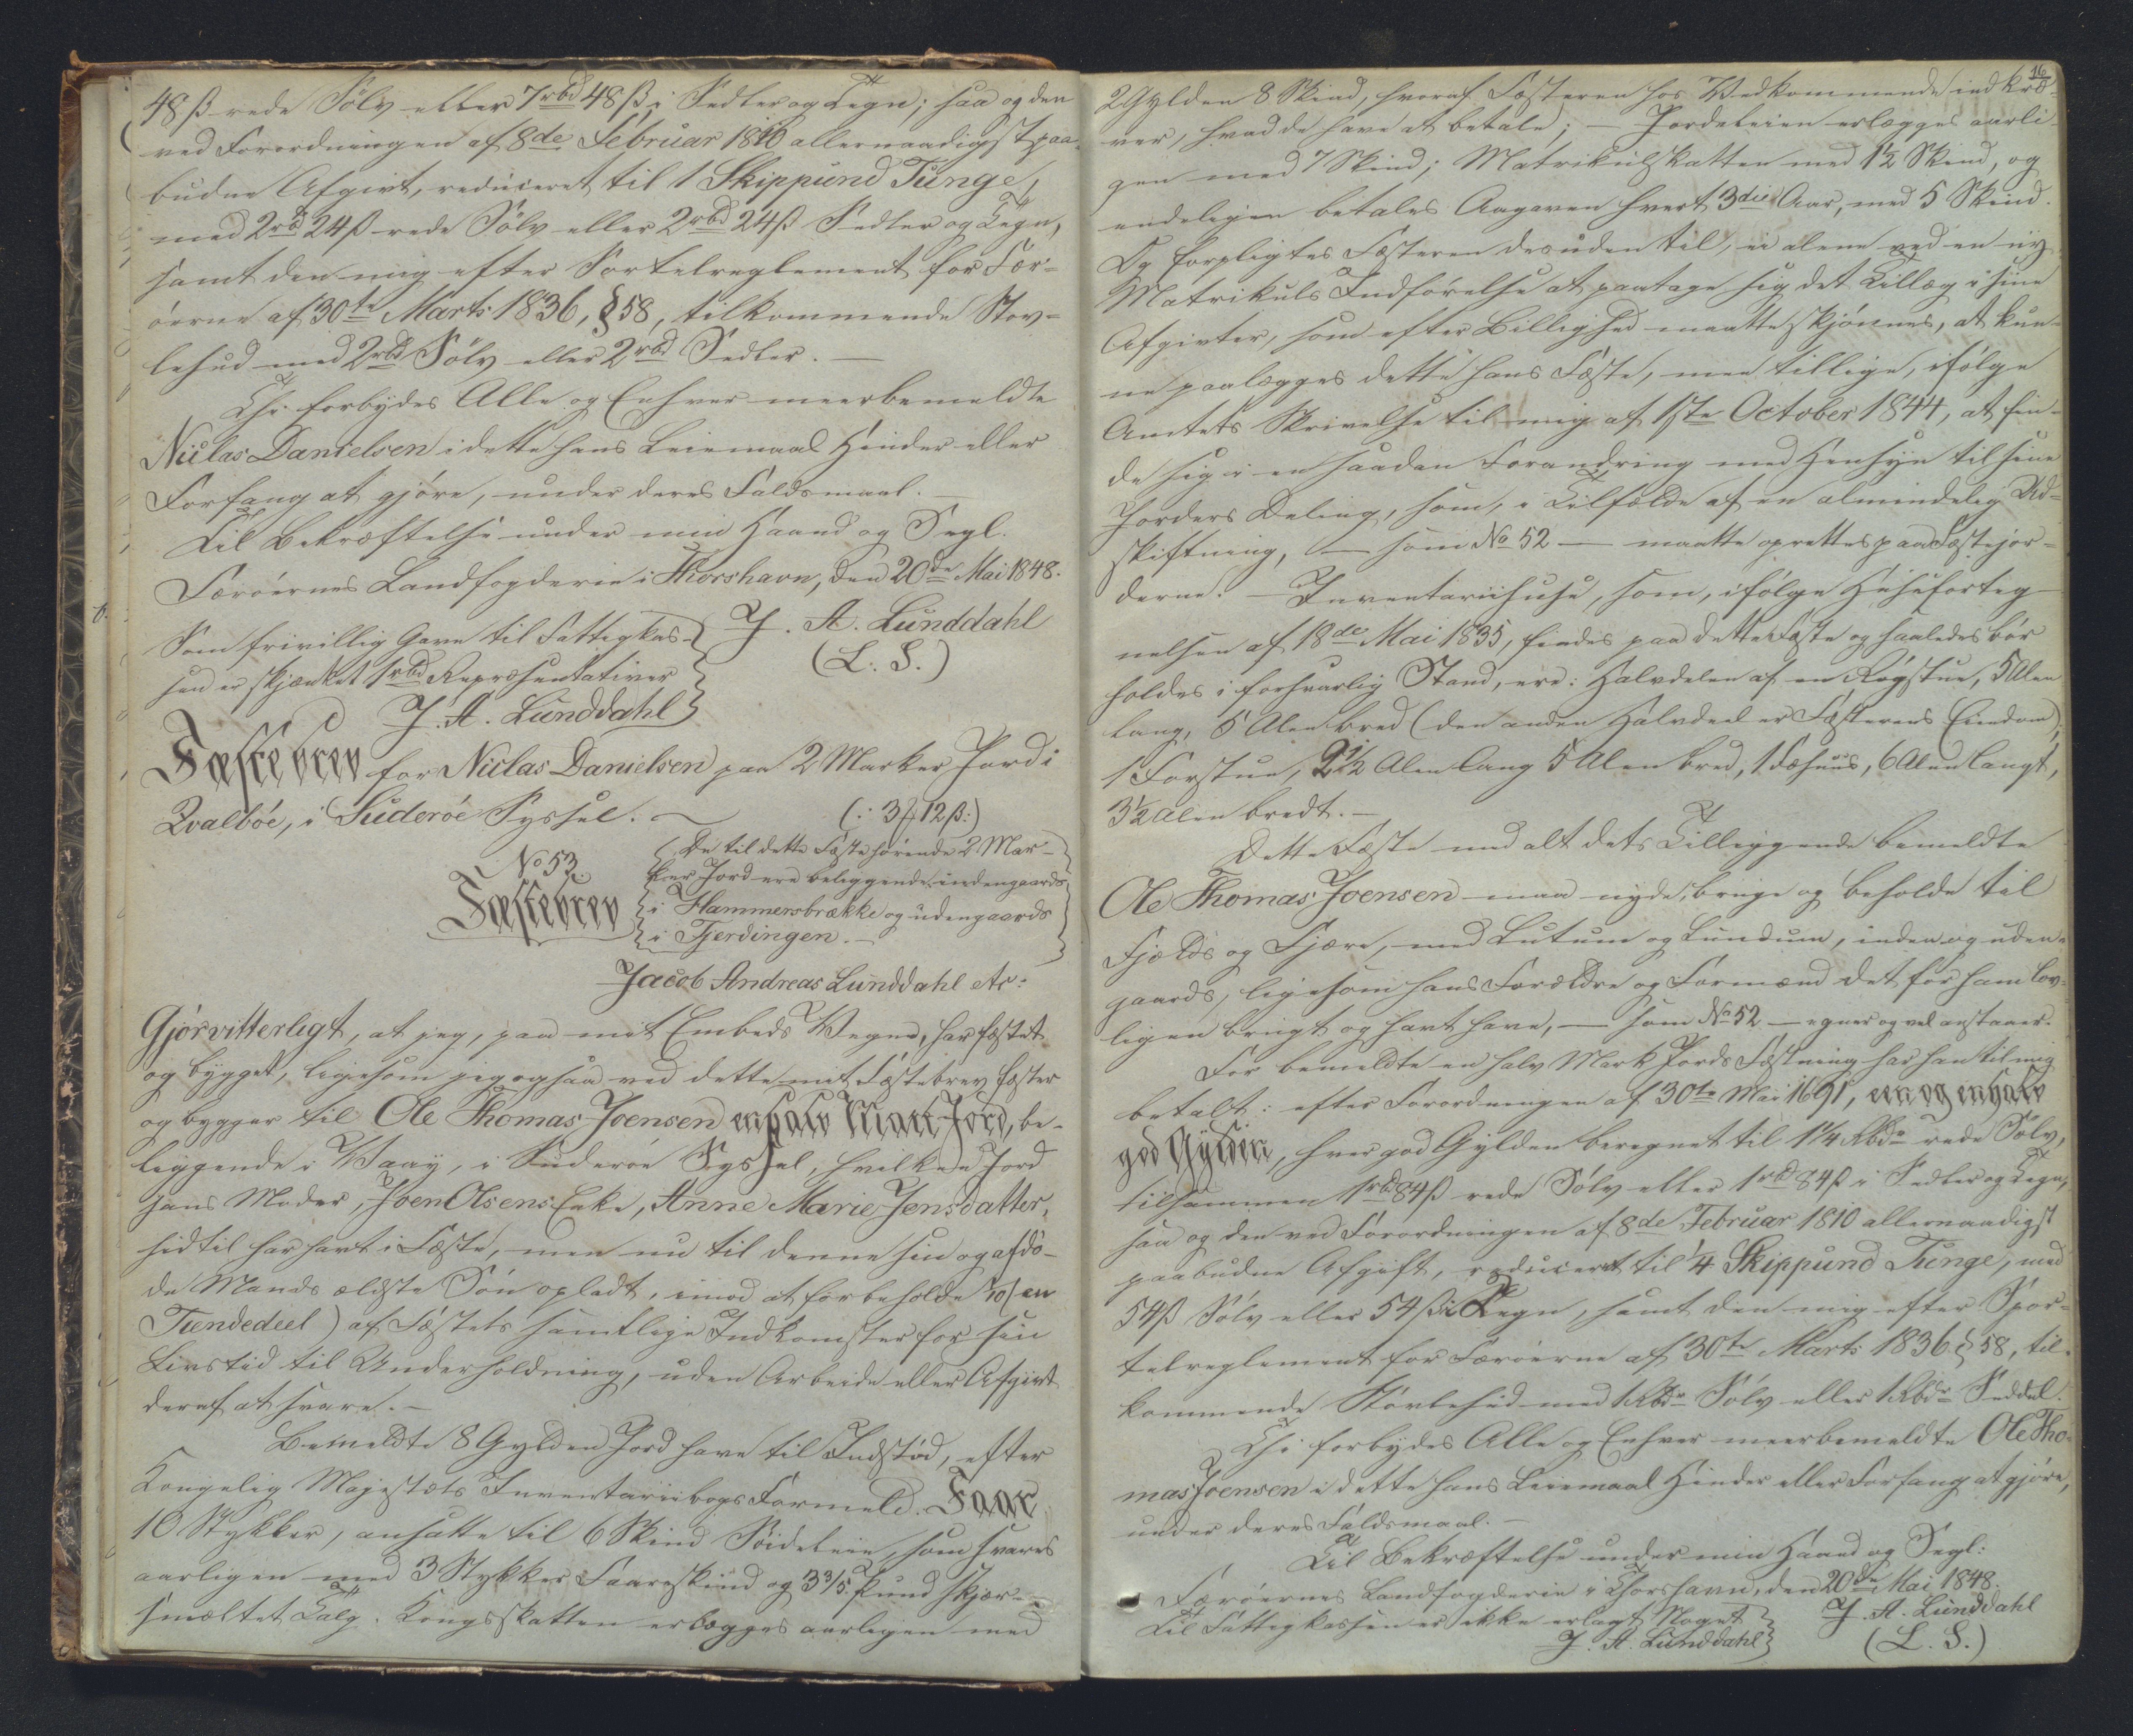 48 ß rede Sølv eller 7 rbd 48 ß i Sedler og Tegn; saa og den
ved Forordningen af 8de Februar 1810 allernaadigst paa-
budne Afgivt, reduceret til 1 Skippund Tunge,
med 2 rbd 24 ß rede Sølv eller 2 rbd 24 ß Sedler og Tegn,
samt den mig efter Sportelreglement for Fær-
øerne af 30te Marts 1836, § 58, tilkommende Støv-
lehud med 2 rbd Sølv eller 2 rbd Sedler. —
Thi forbydes Alle og Enhver meerbemeldte
Niclas Danielsen i dette hans Leiemaal Hinder eller
Forfang at gjøre, under deres Faldsmaal. —
Til Bekræftelse under min Haand og Segl.
Færøernes Landfogderie i Thorshavn, den 20de Mai 1848.
Som frivillig Gave til Fattigkas-
sen er skjænket 1 rbd Repræsentativer
J. A. Lunddahl
J. A. Lunddahl
(L. S.)
Fæstebrev for Niclas Danielsen paa 2 Marker Jord i
Qvalböe, i Suderöe Syssel. — (: 3 f 12 ß :)
No 53.
Fæstebrev
De til dette Fæste hørende 2 Mar-
ker Jord ere beliggende indengaards
i Hammersbrække og udengaards
i Fjerdingen. —
Jacob Andreas Lunddahl etc:
Gjør vitterligt, at jeg, paa mit Embeds Vegne, har fæstet
og bygget, ligesom jeg ogsaa ved dette mit Fæstebrev fæster
og bygger til Ole Thomas Joensen en halv Mark Jord, be-
liggende i Waaÿ, i Suderöe Syssel, hvilken Jord
hans Moder, Joen Olsens Enke, Anne Marie Jensdatter,
hidtil har havt i Fæste, men nu til denne sin og afdö-
de Mands ældste Sön opladt, imod at forbeholde 1/10 (en
Tiendedeel) af Fæstets samtlige Indkomster for sin
Livstid til Underholdning, uden Arbeide eller Afgivt
deraf at svare. —
Bemeldte 8 Gylden Jord have til Indstød, efter
Kongelig Majestæts Inventariibogs Formeld. Faar
10 Stykker, ansatte til 6 Skind Söideleie, som svares
aarligen med 3 Stykker Faareskind og 3 3/5 Pund skjær-
smeltet Talg. Kongsskatten erlægges aarligen med
16
2 Gylden 8 Skind, hvoraf Fæsteren hos Vedkommende indkræ-
ver, hvad de have at betale; — Jordeleien erlægges aarli-
gen med 7 Skind; Matrikulskatten med 1½ Skind, og
endeligen betales Aagaven hvert 3die Aar, med 5 Skind.
Og forpligtes Fæsteren desuden til, ei alene ved en ny
Matrikuls Indførelse at paatage sig det Tillæg i sine
Afgivter, som efter Billighed maatte skjönnes, at kun-
ne paalægges dette hans Fæste, men tillige, ifölge
Amtets Skrivelse til mig af 1ste October 1844, at fin-
de sig i en saadan Forandring med Hensyn til sine
Jorders Deling, som, i Tilfælde af en almindelig Ud-
skiftning, — som No 52 — maatte oprettes paa Fæstejor-
derne. — Inventariihuse, som, ifölge Huseforteg-
nelsen af 18de Mai 1835, findes paa dette Fæste og saaledes bör
holdes i forsvarlig Stand, ere: Halvdelen af en Røgstue, 5 Alen
lang, 5 Alen bred (den anden Halvdeel er Fæsterens Eiendom),
1 Forstue, 2½ Alen lang 5 Alen bred, 1 Fæhuus, 6 Alen langt,
3½ Alen bredt. —
Dette Fæste med alt dets Tilliggende bemeldte
Ole Thomas Joensen maa nyde, bruge og beholde til
Fjelds og Fjære, med Lutum og Lundum, inden og uden-
gaards, ligesom hans Forældre og Formænd det for ham lov-
ligen brugt og havt have, — som No 52 — egner og vel anstaaer.
For bemeldte en halv Mark Jords Fæstning har han til mig
betalt: efter Forordningen af 30te Mai 1691, een og en halv
god Gylden, hver god Gylden beregnet til 1¼ Rbdr rede Sölv,
tilsammen 1 rbd 84 ß rede Sölv eller 1 rbd 84 ß i Sedler og Tegn,
saa og den ved Forordningen af 8de Februar 1810 allernaadigst
paabudne Afgift, reduceret til ¼ Skippund Tunge, med
54 ß Sölv eller 54 ß i Tegn, samt den mig efter Spor-
telreglement for Færöerne af 30te Marts 1836 § 58, til-
kommende Støvlehud med 1 Rbdr Sölv eller 1 Rbdr Seddel.
Thi forbydes Alle og Enhver meerbemeldte Ole Tho-
mas Joensen i dette hans Leiemaal Hinder eller Forfang at gjöre,
under deres Faldsmaal. —
Til Bekræftelse under min Haand og Segl:
Færöernes Landfogderie i Thorshavn, den 20de Mai 1848.
Til Fattigkassen er ikke erlagt Noget
J. A. Lunddahl
J. A. Lunddahl
(L. S.)